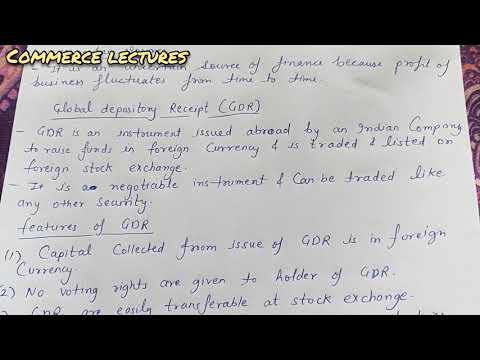 COMMERCE LECTURES
- It is an uncertain source of finance because profit of
business fluctuates from time to time.
Global depository Receipt (GDR)
- GDR is an instrument issued abroad by an Indian Company
to raise funds in foreign Currency & is traded & listed on
foreign stock exchange.
- It is a negotiable instrument & Can be traded like
any other security.
features of GDR
(1) Capital Collected from issue of GDR is in foreign
Currency.
2) No voting rights are given to holder of GDR.
GDR are easily transferable at stock exchange.